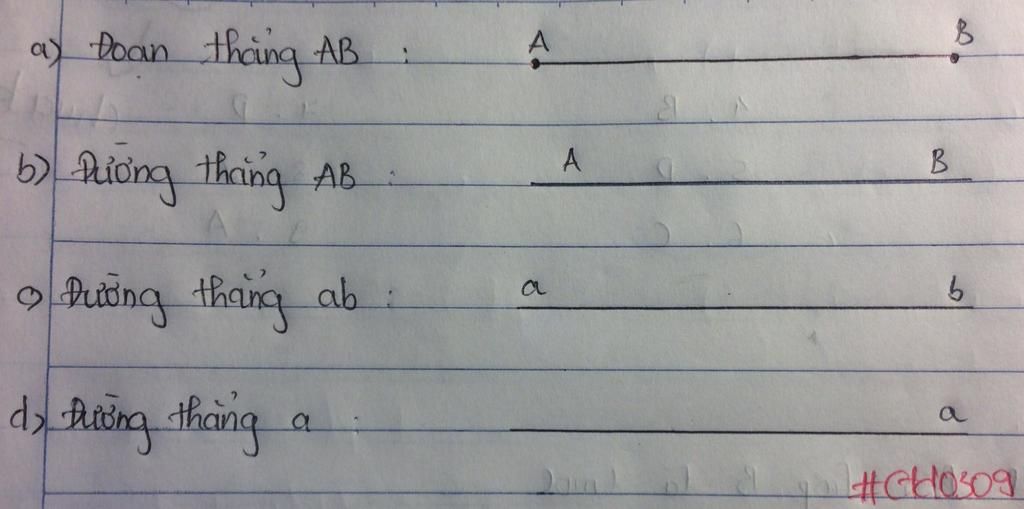 a) Đoạn thẳng AB : A B
b) Đường thẳng AB : A B
c) Đường thẳng ab : a b
d) Đường thẳng a : a